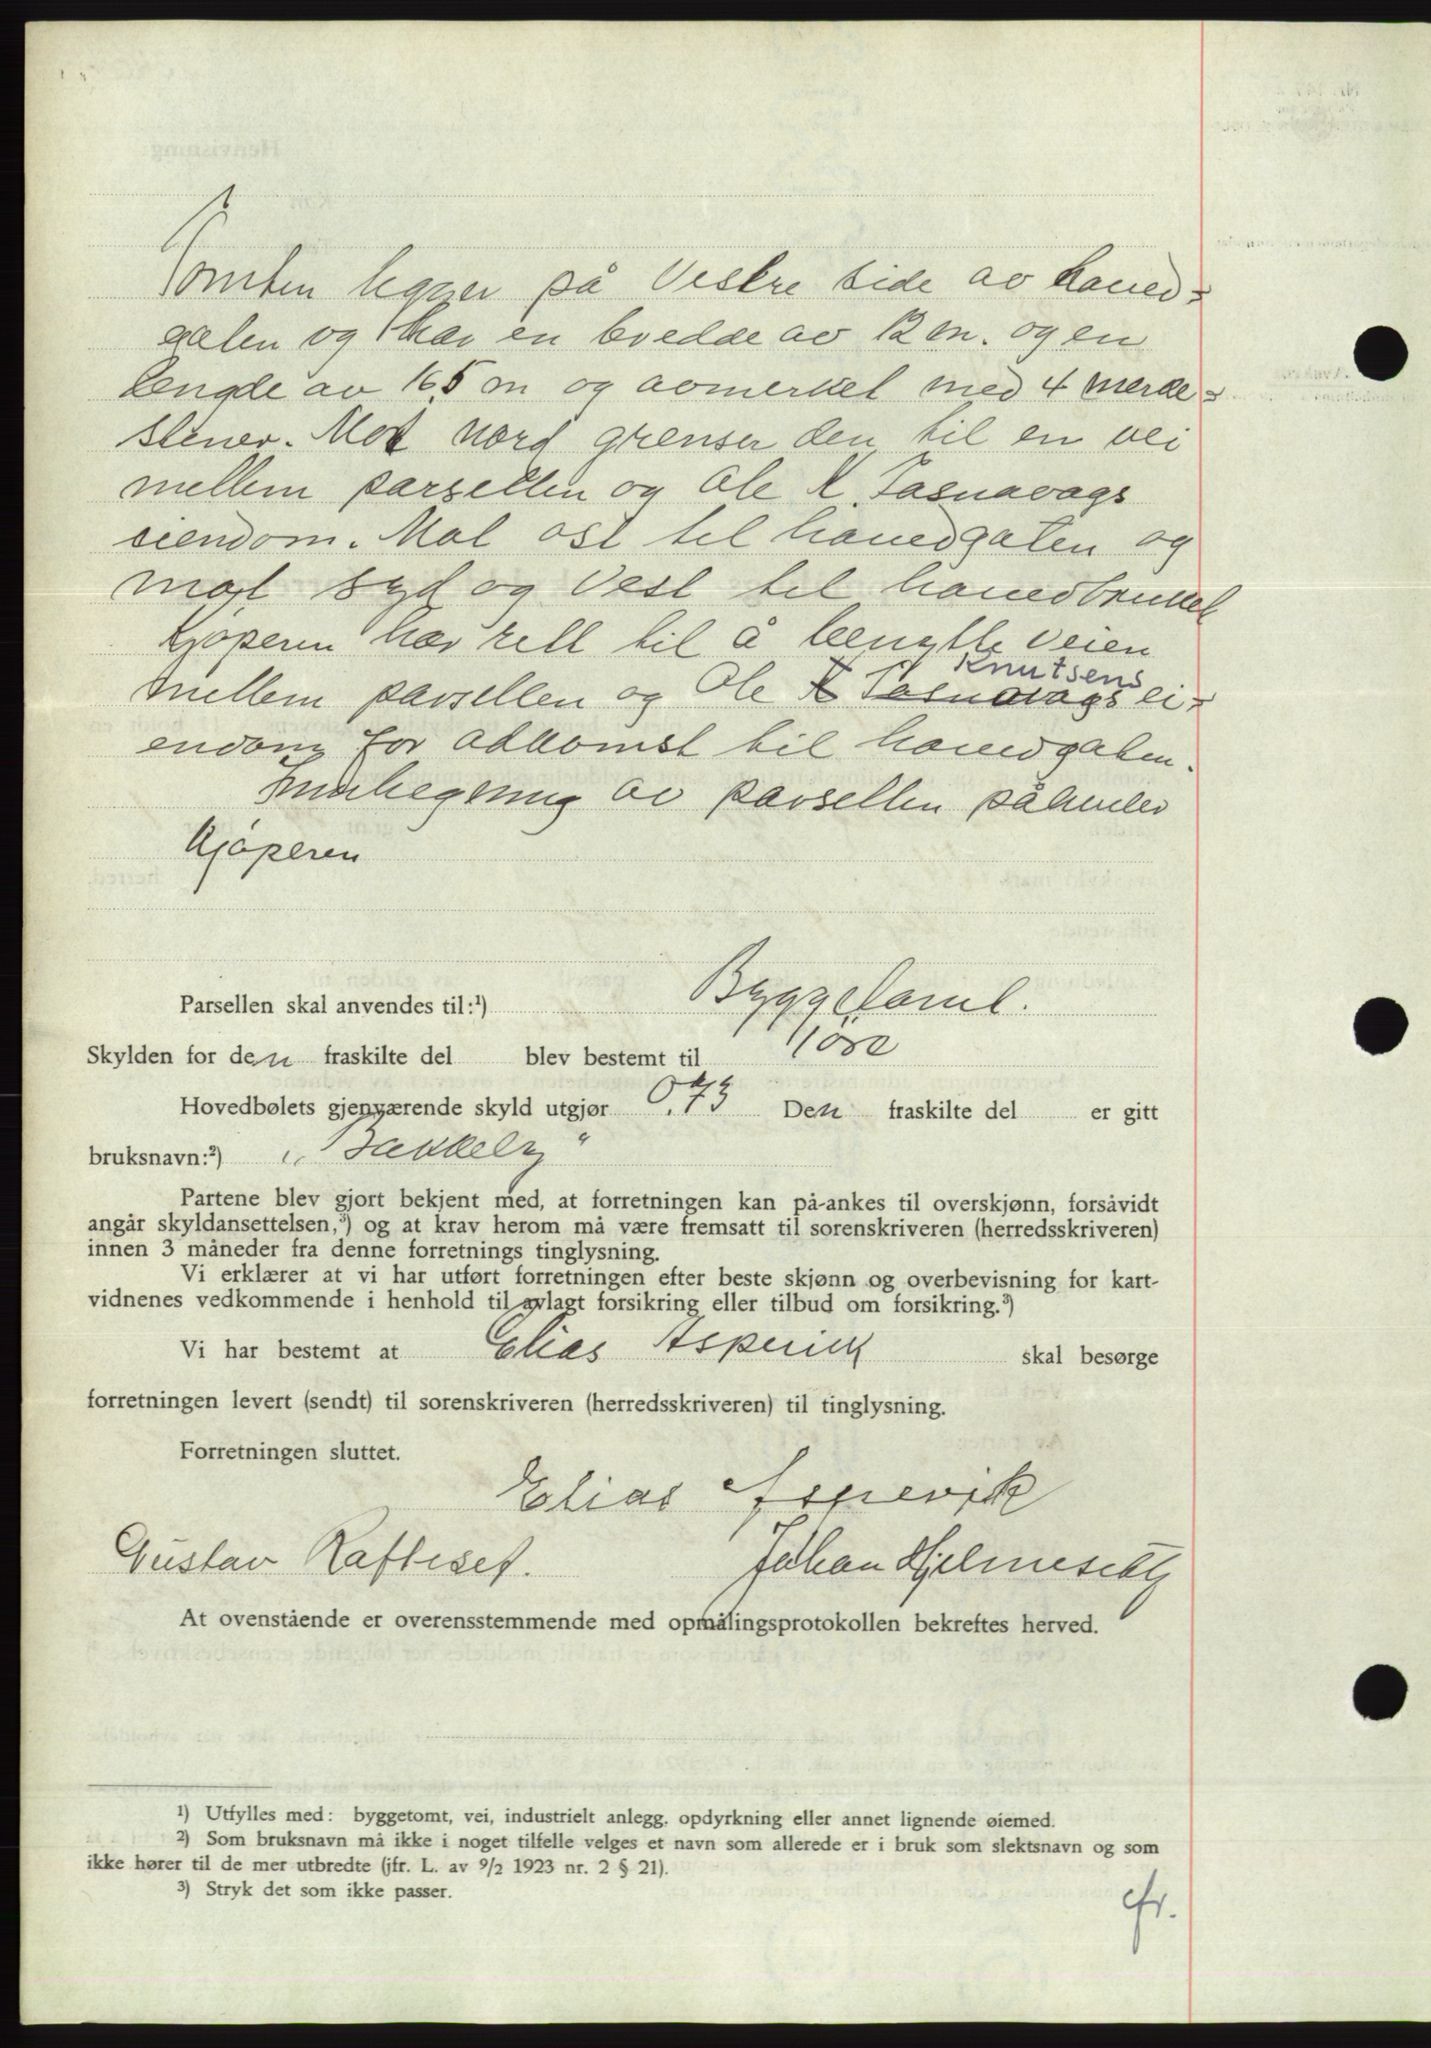 Tomten ligger på Vestre side av hoved-
gaten og har en bredde av 12 m. og en
lengde av 16,5 m og avmerket med 4 merke-
stener. Mot nord grenser den til en vei
mellem parsellen og Ole K. Fosnavågs
eiendom. Mot ost til hovedgaten og
mot syd og Vest til hovedbruket
Kjøperen har rett til å benytte veien
Knutsens
mellem parsellen og Ole K Fosnavågs ei-
endom for adkomst til hovedgaten.
Innhegning av parsellen påhviler
Kjøperen
Parsellen skal anvendes til:¹) Byggetomt.
Skylden for den fraskilte del blev bestemt til 1 øre
Hovedbølets gjenværende skyld utgjør 0,73 Den fraskilte del er gitt
bruksnavn:²) „Bakkely"
Partene blev gjort bekjent med, at forretningen kan på-ankes til overskjønn, forsåvidt
angår skyldansettelsen,³) og at krav herom må være fremsatt til sorenskriveren (herredsskriveren)
innen 3 måneder fra denne forretnings tinglysning.
Vi erklærer at vi har utført forretningen efter beste skjønn og overbevisning for kart-
vidnenes vedkommende i henhold til avlagt forsikring eller tilbud om forsikring.³)
Vi har bestemt at Elias Aspevik skal besørge
forretningen levert (sendt) til sorenskriveren (herredsskriveren) til tinglysning.
Forretningen sluttet.
Elias Aspevik
Gustav Rafteset. Johan Hjelmeseth
At ovenstående er overensstemmende med opmålingsprotokollen bekreftes herved.
¹) Utfylles med: byggetomt, vei, industrielt anlegg, opdyrkning eller annet lignende øiemed.
²) Som bruksnavn må ikke i noget tilfelle velges et navn som allerede er i bruk som slektsnavn og som
ikke hører til de mer utbredte (jfr. L. av 9/2 1923 nr. 2 § 21).
³) Stryk det som ikke passer.